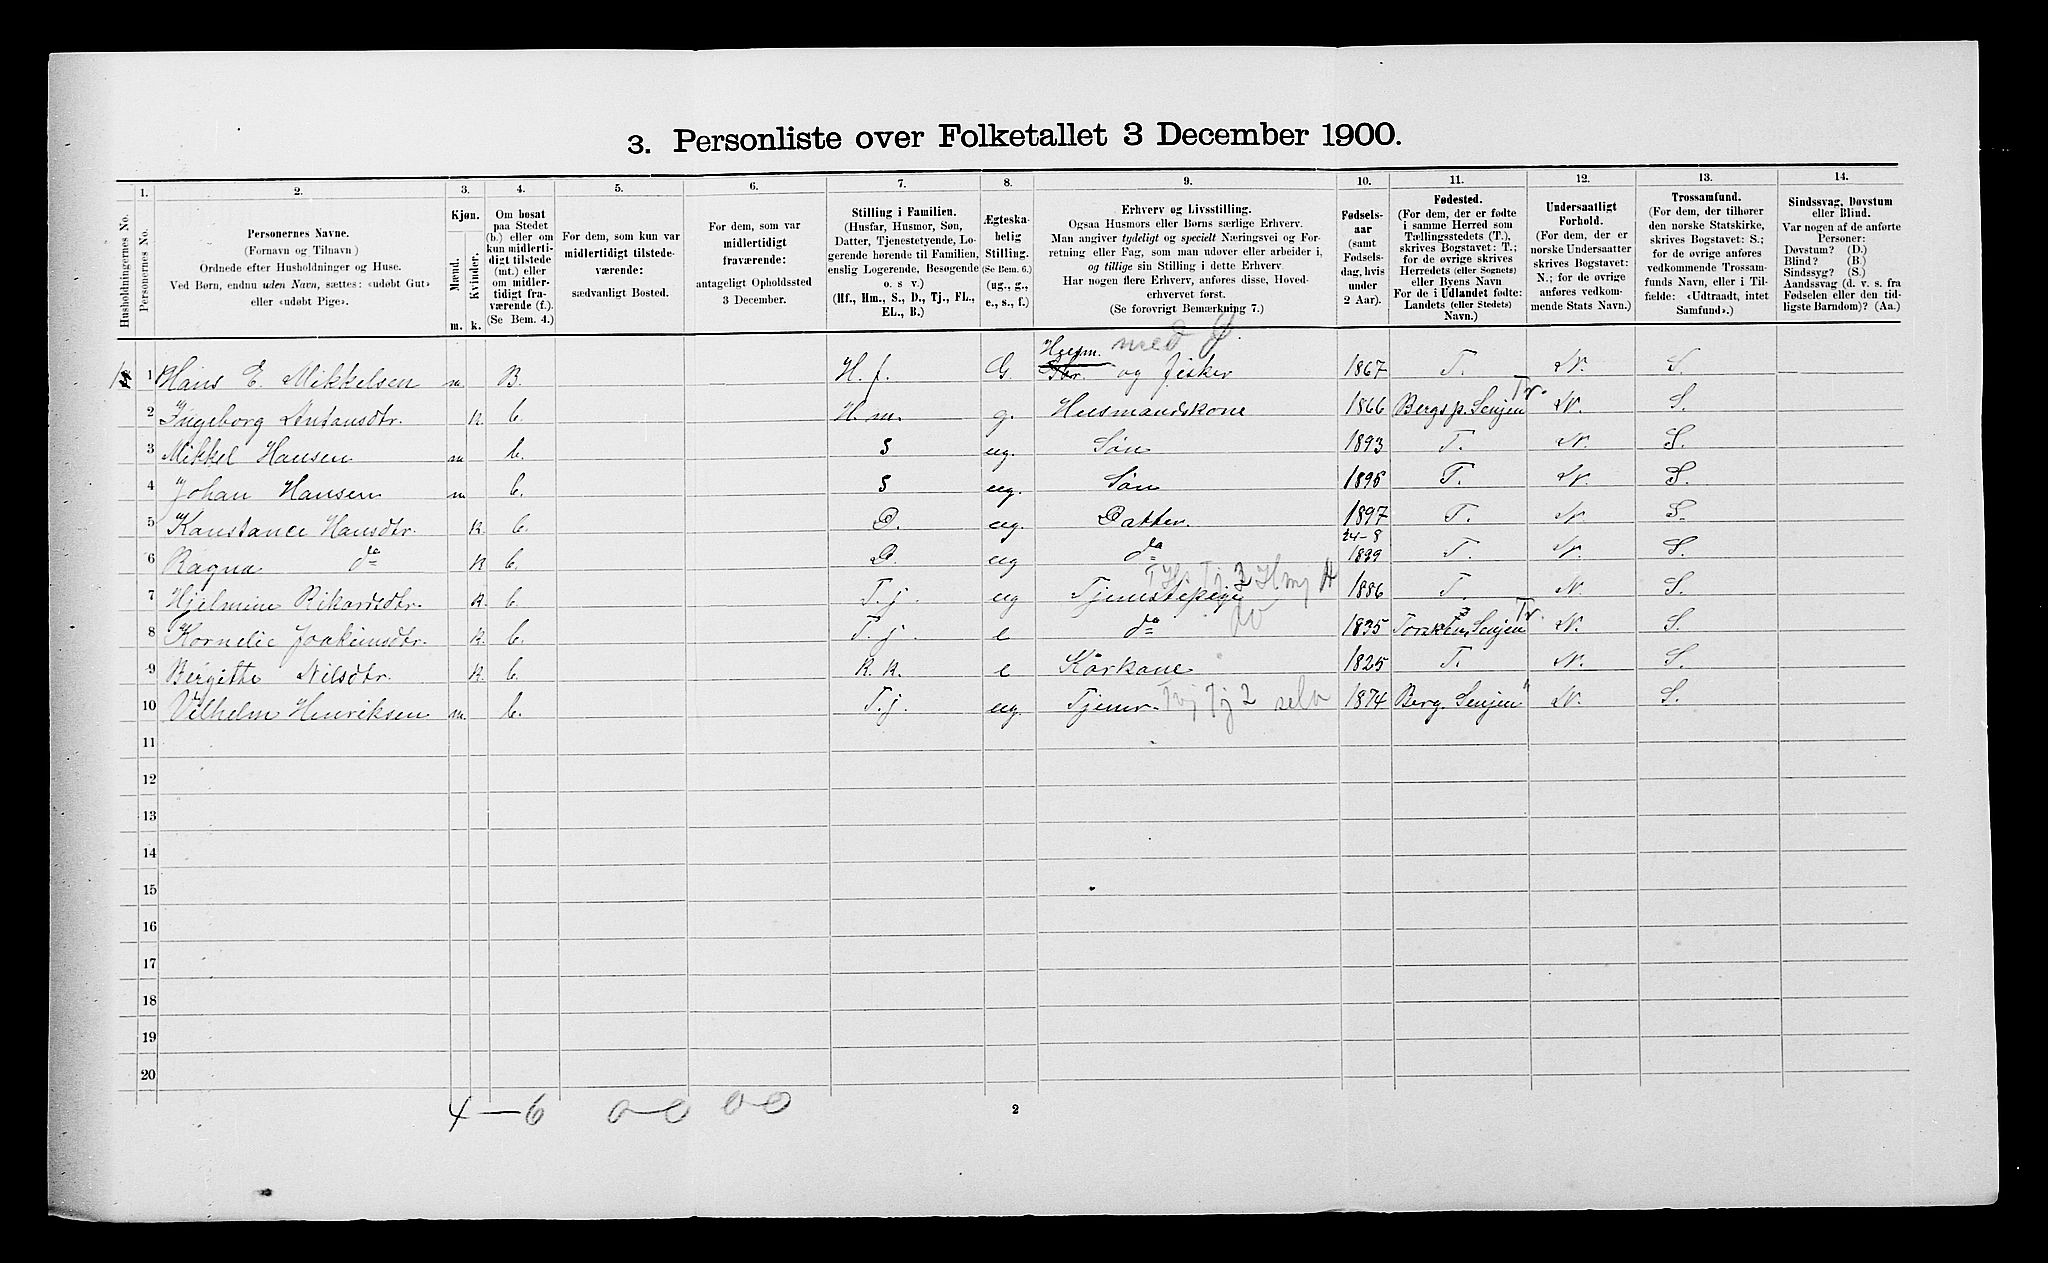 3. Personliste over Folketallet 3 December 1900.
1. 2. 3. 4. 5. 6. 7. 8. 9. 10. 11. 12. 13. 14.
Husholdningernes No.
Personernes No.
Personernes Navne.
(Fornavn og Tilnavn)
Ordnede efter Husholdninger og Huse.
Ved Børn, endnu uden Navn, sættes: «udøbt Gut»
eller «udøbt Pige».
Kjøn.
Mænd. Kvinder.
m. k.
Om bosat
paa Stedet
(b.) eller om
kun midlerti-
digt tilstede
(mt.) eller
om midler-
tidigt fra-
værende (f.).
(Se Bem. 4.)
For dem, som kun var
midlertidigt tilstede-
værende:
sædvanligt Bosted.
For dem, som var
midlertidigt
fraværende:
antageligt Opholdssted
3 December.
Stilling i Familien.
(Husfar, Husmor, Søn,
Datter, Tjenestetyende, Lo-
gerende hørende til Familien,
enslig Logerende, Besøgende
o. s v.)
(Hf., Hm., S., D., Tj., FL.,
EL., B.)
Ægteska-
belig
Stilling.
(Se Bem. 6.)
(ug., g.,
e., s., f.)
Erhverv og Livsstilling.
Ogsaa Husmors eller Børns særlige Erhverv.
Man angiver tydeligt og specielt Næringsvei og For-
retning eller Fag, som man udøver eller arbeider i,
og tillige sin Stilling i dette Erhverv.
Har nogen flere Erhverv, anføres disse, Hoved-
erhvervet først.
(Se forøvrigt Bemærkning 7.)
Fødsels-
aar
(samt
Fødsels-
dag, hvis
under
2 Aar).
Fødested.
(For dem, der er fødte
i samme Herred som
Tællingsstedets (T.),
skrives Bogstavet: T.;
for de øvrige skrives
Herredets (eller Sognets)
eller Byens Navn
For de i Udlandet fødte:
Landets (eller Stedets)
Navn.)
Undersaatligt
Forhold.
(For dem, der er
norske Undersaatter
skrives Bogstavet:
N.; for de øvrige
anføres vedkom-
mende Stats Navn.)
Trossamfund.
(For dem, der tilhører
den norske Statskirke,
skrives Bogstavet: S.;
for de øvrige anføres
vedkommende Trossam-
funds Navn, eller i Til-
fælde: «Udtraadt, intet
Samfund».)
Sindssvag, Døvstum
eller Blind.
Var nogen af de anførte
Personer:
Døvstum? (D.)
Blind? (B.)
Sindssyg? (S.)
Aandssvag (d. v. s. fra
Fødselen eller den tid-
ligste Barndom)? (Aa.)
Husm. med J.
1 Hans E. Mikkelsen m. B. H. f. G. og fisker 1867 T. N. S.
2 Ingeborg Antonsdtr. K. b. H. m. g. Husmandskone 1866 Bergs p. Senjen Tr. N. S.
3 Mikkel Hansen m b. S ug. Søn 1893 T. N. S.
4 Johan Hansen m b. S ug. Søn 1895 T. N. S.
5 Konstance Hansdtr. K b. D. ug. Datter. 1897 T. N. S.
24-8
6 Ragna do K b. D. ug do 1899 T. N. S.
7 Hjelmine Rikardsdtr. K. b. T. j. ug Tjenestepige 1886 T. N. S.
8 Kornelie Joakimsdtr. K. b. T. j e do 1835 Torsken, Senjen Tr. N. S.
9 Bergitte Nilsdtr. K. b. K. K. e Kårkone 1825 T. N. S.
10 Vilhelm Henriksen m. b. T. j. ug. Tjener Tj 2 selv 1874 Berg. Senjen " N. S.
11
12
13
14
15
16
17
18
19
20
4 - 6 0-0 0-0
2